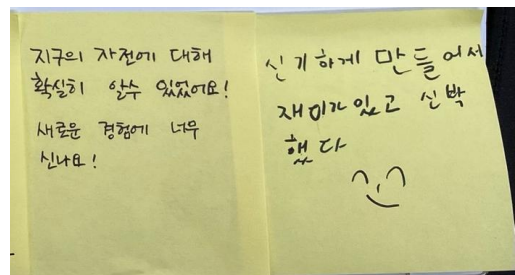 지구의 자전에 대해
확실히 알수 있었어요!
새로운 경험에 너무
신나요!
신기하게 만들어서
재미가있고 신박
했다